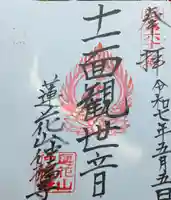 奉拝
令和七年五月五日
十一面観世音
蓮花山
蓮花山